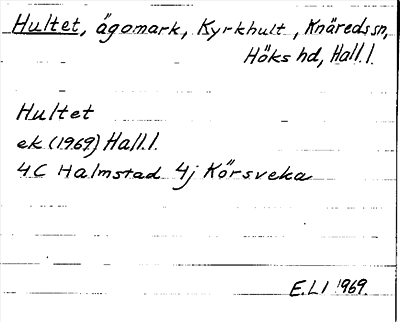 Hultet, ägomark, Kyrkhult, Knäreds sn,
Höks hd, Hall. l.
Hultet
ek (1969) Hall. l.
4C Halmstad 4j Körsveka
E.L I 1969.